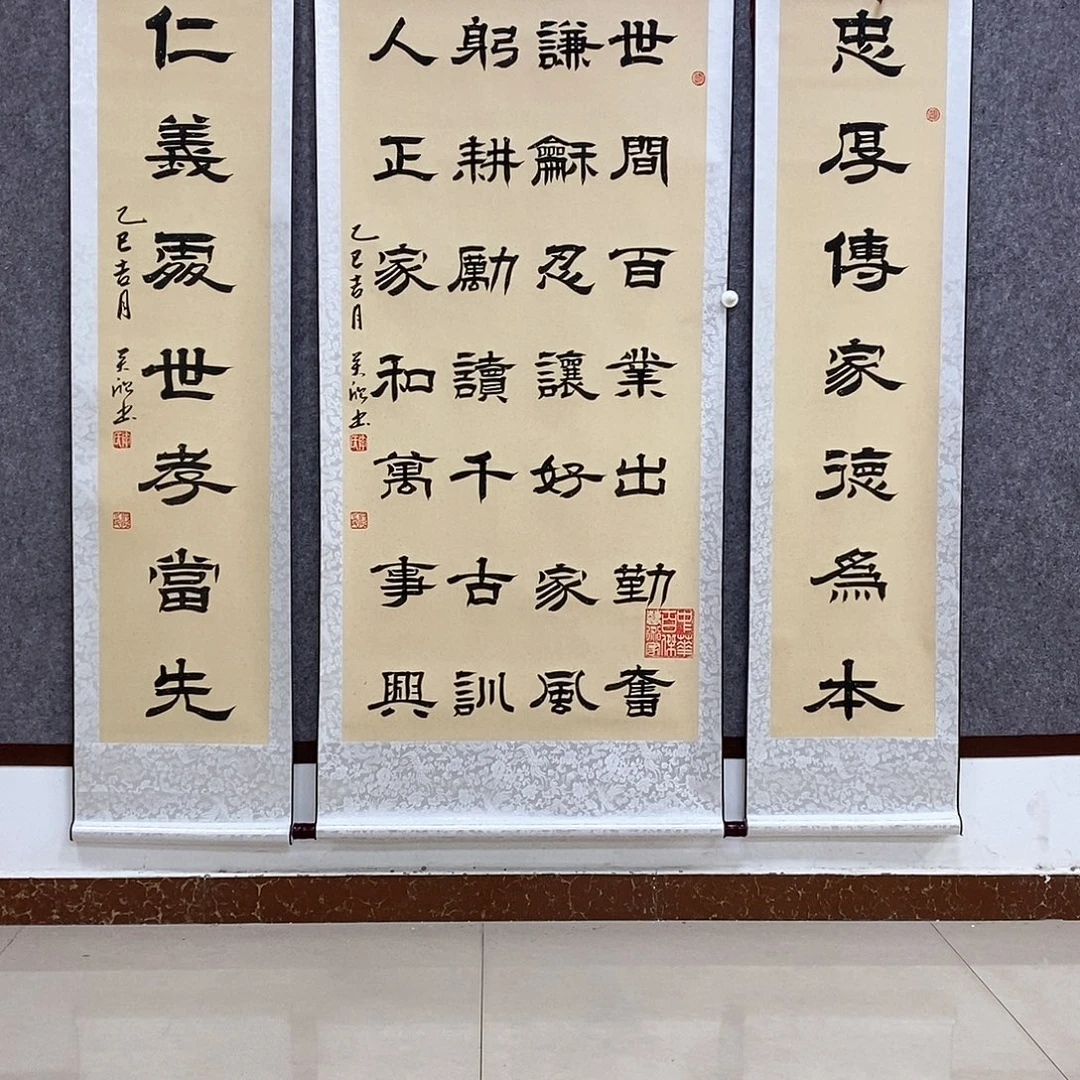 忠厚傳家德為本
世間百業出勤奮
謙龢忍讓好家風
躬耕勵讀千古訓
人正家和萬事興
乙巳吉月
仁義處世孝當先
乙巳吉月
中華百傑